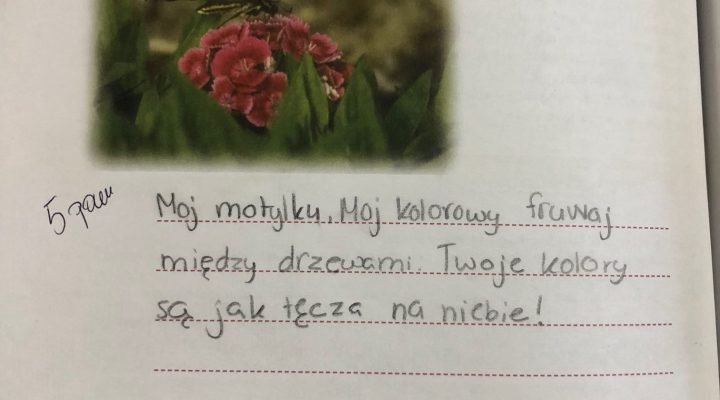 Moj motylku, Moj kolorowy fruwaj
między drzewami. Twoje kolory
są jak tęcza na niebie!
5